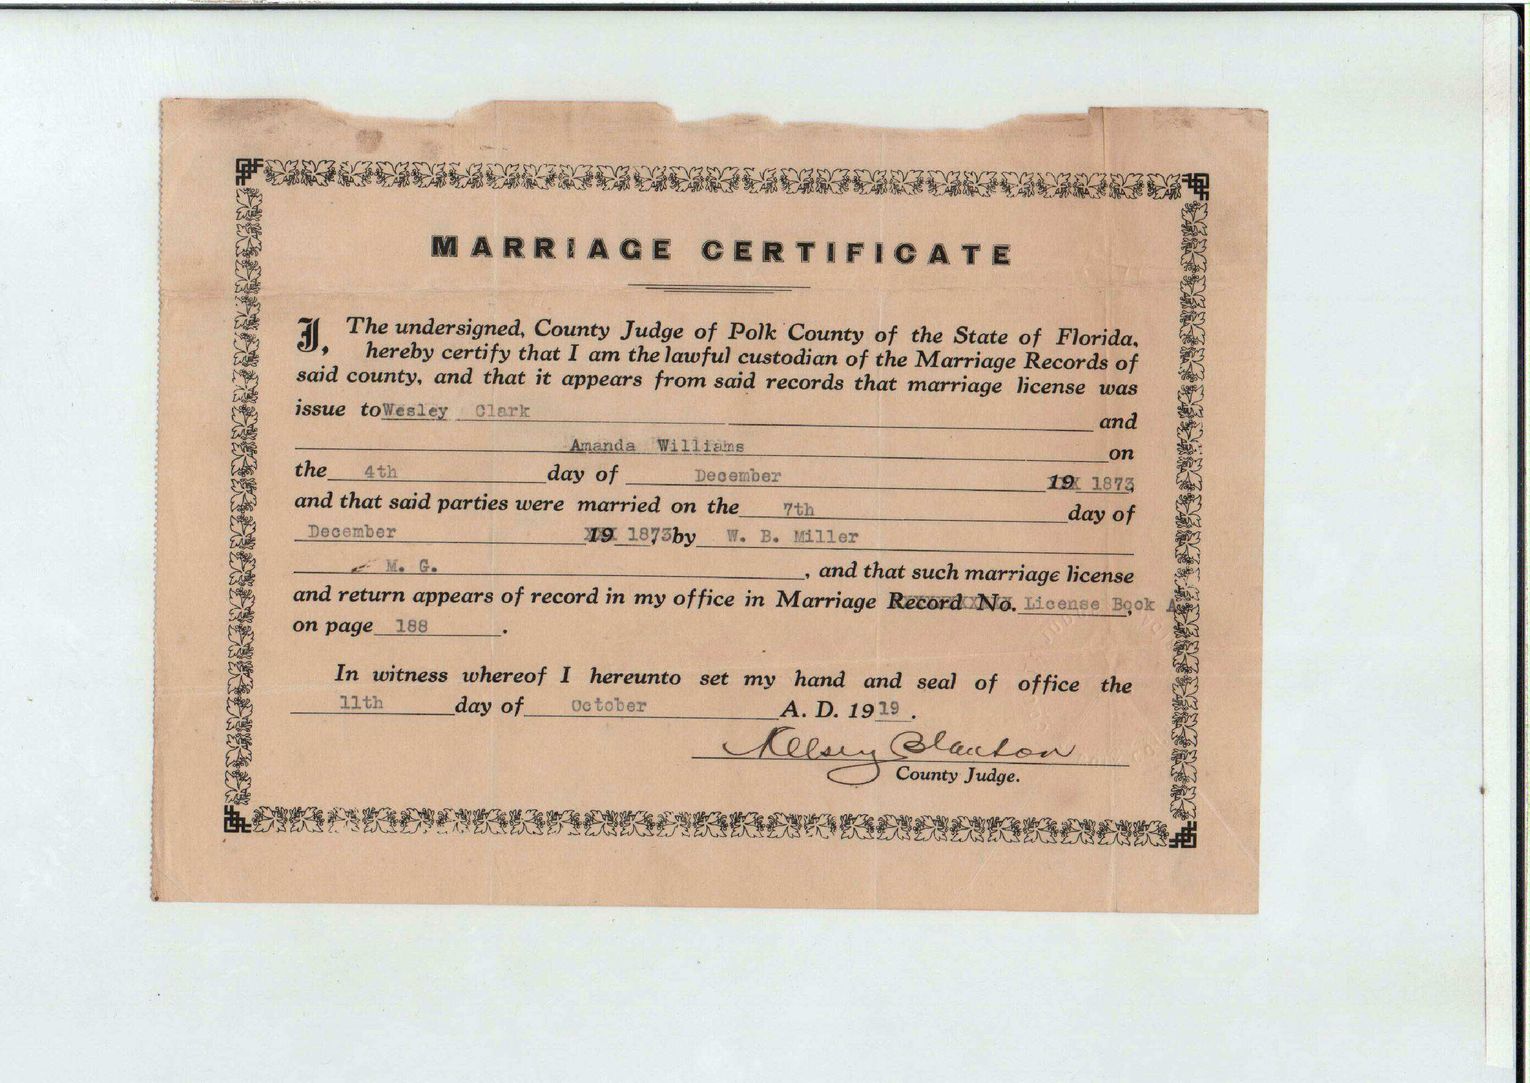 MARRIAGE CERTIFICATE
I, The undersigned, County Judge of Polk County of the State of Florida,
hereby certify that I am the lawful custodian of the Marriage Records of
said county, and that it appears from said records that marriage license was
issue to Wesley Clark and
Amanda Williams on
the 4th day of December 19 1873,
and that said parties were married on the 7th day of
December 19 1873, by W. B. Miller
M. G. , and that such marriage license
and return appears of record in my office in Marriage Record No. License Book A,
on page 188 .
In witness whereof I hereunto set my hand and seal of office the
11th day of October A. D. 1919 .
Kelsey Blanton
County Judge.